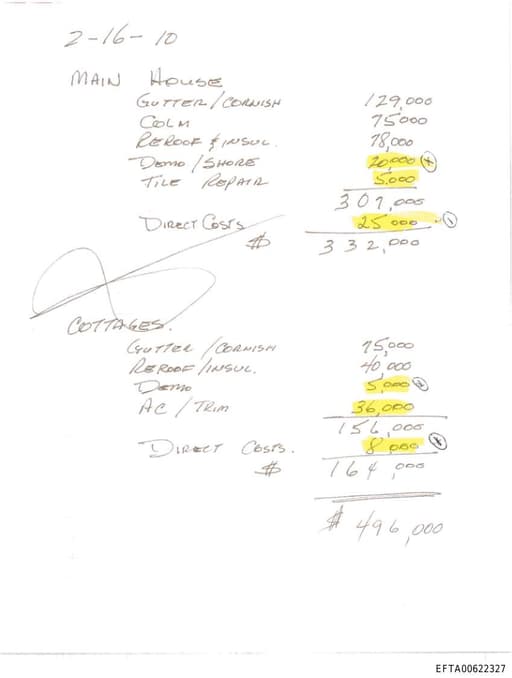 2-16-10
MAIN HOUSE
GUTTER/CORNISH 129,000
COLM 75000
REROOF & INSUL. 78,000
DEMO/SHORE 20,000
TILE REPAIR 5.000
307,000
DIRECT COSTS 25 000
$ 332,000
COTTAGES.
GUTTER/CORNISH 75,000
REROOF/INSUL. 40,000
DEMO 5,000
AC/TRIM 36,000
156,000
DIRECT COSTS. 8,000
$ 164,000
$ 496,000
EFTA00622327